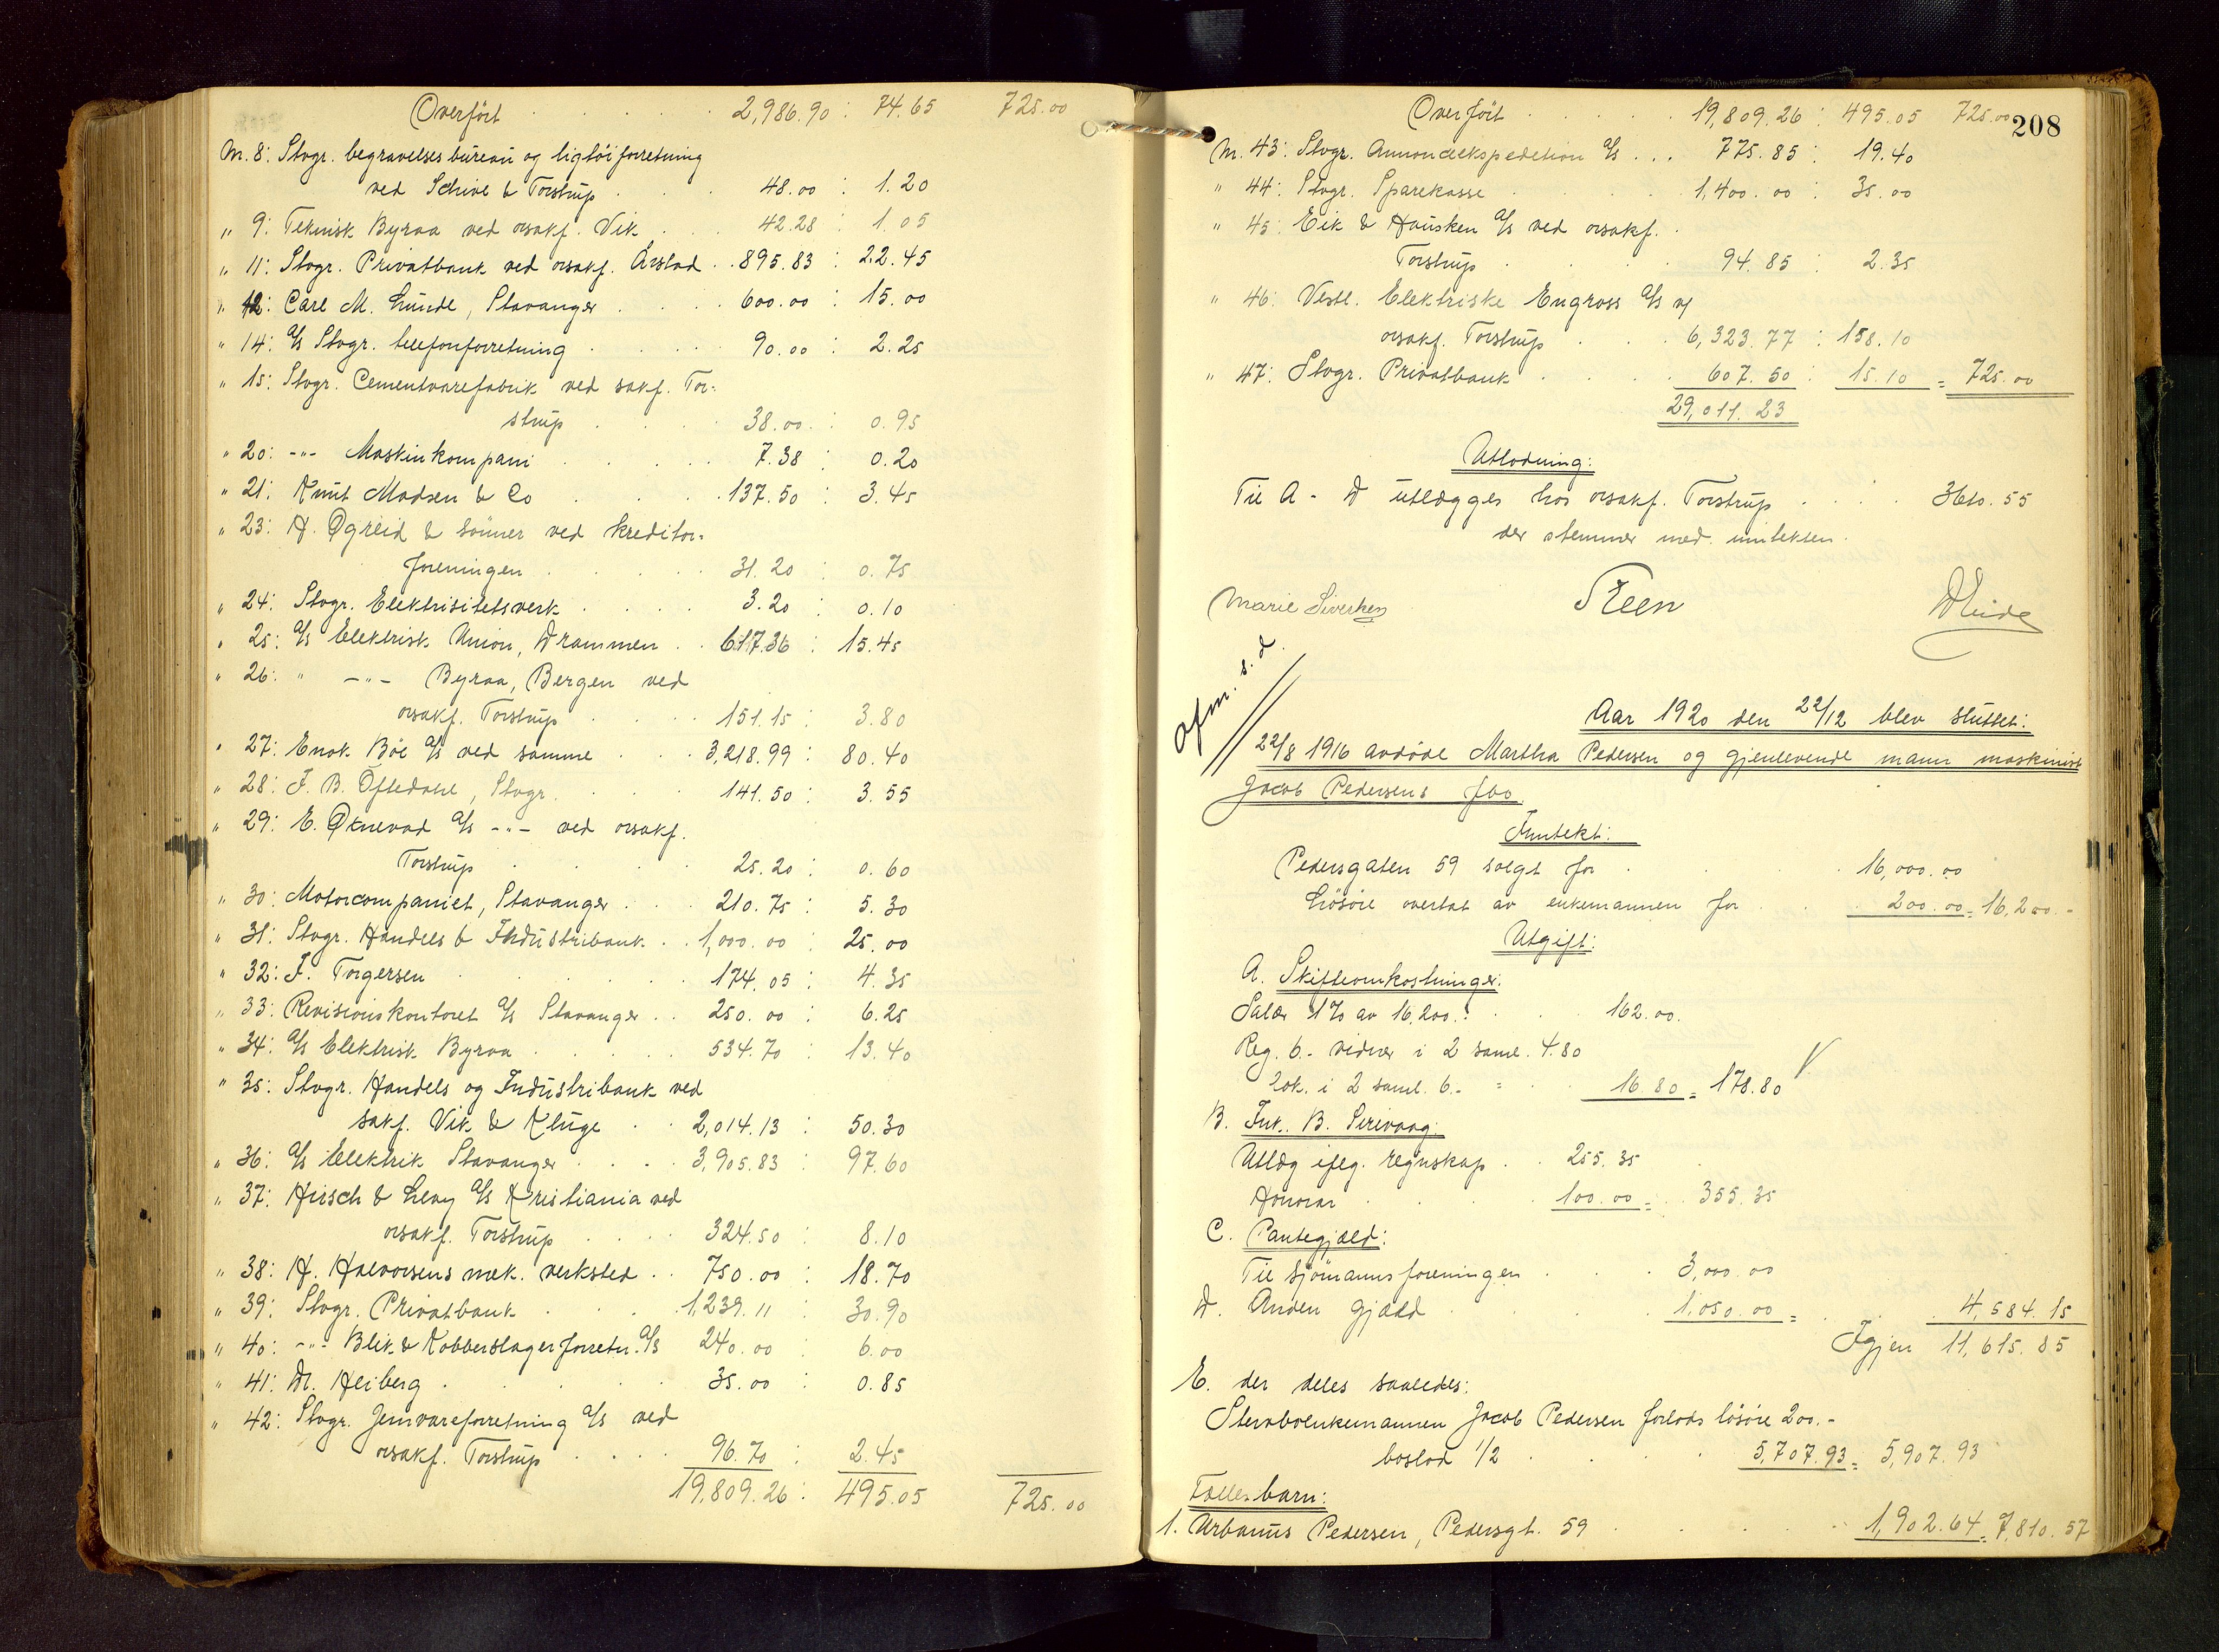 Overført . . . . . 2,986.90 : 74.65 725.00
m. 8: Stvgr. begravelsesbureau og ligtøiforretning
ved Schive & Torstrup . . . 48.00 : 1.20
" 9: Teknisk Byraa ved orsakf. Vik . . 42.28 : 1.05
" 11: Stvgr. Privatbank ved orsakf. Årstad . . 895.83 : 22.45
" 12: Carl M. Lunde, Stavanger . . . 600.00 : 15.00
" 14: A/S Stvgr. telefonforretning . . . 90.00 : 2.25
" 15: Stvgr. Cementvarefabrik ved sakf. Tor-
strup . . . 38.00 : 0.95
" 20: -"- Maskinkompani . . . . 7.38 : 0.20
" 21: Knut Madsen & Co . . . . 137.50 : 3.45
" 23: H. Øgreid & sønner ved kreditor-
foreningen . . . . 31.20 : 0.75
" 24: Stvgr. Elektrisitetsverk . . . . 3.20 : 0.10
" 25: A/S Elektrisk Union, Drammen . . 617.36 : 15.45
" 26: " -"- Byraa, Bergen ved
orsakf. Torstrup . . . 151.15 : 3.80
" 27: Enok Bøe A/S ved samme . . . 3,218.99 : 80.40
" 28: J. B. Oftedahl, Stvgr. . . . 141.50 : 3.55
" 29: E. Øknevad A/S -"- ved orsakf.
Torstrup . . . . 25.20 : 0.60
" 30: Motorcompaniet, Stavanger . . . 210.75 : 5.30
" 31: Stvgr. Handels & Industribank . . 1,000.00 : 25.00
" 32: J. Torgersen . . . . 174.05 : 4.35
" 33: Revisionskontoret A/S Stavanger . . 250.00 : 6.25
" 34: A/S Elektrisk Byraa . . . . 534.70 : 13.40
" 35: Stvgr. Handels og Industribank ved
sakf. Vik & Kluge . . 2,014.13 : 50.30
" 36: A/S Elektrik Stavanger . . . . 3,905.83 : 97.60
" 37: Hirsch & Levy A/S Kristiania ved
orsakf. Torstrup . . . . 324.50 : 8.10
" 38: H. Halvorsens mek. verksted . . 750.00 : 18.70
" 39: Stvgr. Privatbank . . . . 1,239.11 : 30.90
" 40: -"- Blik & Kobberslagerforretn. A/S 240.00 : 6.00
" 41: Dr. Heiberg . . . . 35.00 : 0.85
" 42: Stvgr. Jernvareforretning A/S ved
orsakf. Torstrup . . . . 96.70 : 2.45
19,809.26 : 495.05 725.00
208
Overført . . . . . 19,809.26 : 495.05 725.00
m. 43: Stvgr. Annoncekspedition A/S . . . 775.85 : 19.40
" 44: Stvgr. Sparekasse . . . 1,400.00 : 35.00
" 45: Eik & Hausken A/S ved orsakf.
Torstrup . . . . 94.85 : 2.35
" 46: Vestl. Elektriske Engross A/S v/
orsakf. Torstrup . . . 6,323.77 : 158.10
" 47: Stvgr. Privatbank . . . . 607.50 : 15.10 = 725.00
29,011.23
Utlodning:
Til A - D utlægges hos orsakf. Torstrup . . . . 3610.55
der stemmer med inntekten.
Marie Siverksen Steen
Afm. s. d.
Aar 1920 den 22/12 blev sluttet:
22/8 1916 avdøde Martha Pedersen og gjenlevende mann maskinist
Jacob Pedersens fbo.
Inntekt:
Pedersgaten 59 solgt for . . . 16,000.00
Løsøre overtat av enkemannen for . . . 200.00 = 16,200.-
Utgift:
A. Skifteomkostninger:
Salær 1% av 16,200.: . . 162.00.
Reg. 6.- vidner i 2 saml. 4.80
lok. i 2 saml. 6.- = . . 16.80 = 178.80
B. Ink. B. Sirivaag:
Utlæg ifølg. regnskap . . 255.35
Honorar . . . 100.00 = . . 355.35
C. Pantegjæld:
Til sjømannsforeningen . . . 3,000.00
D. Anden gjæld . . . 1,050.00 = . . 4,584.15
Igjen 11,615.85
E. der deles saaledes:
Stervboenkemannen Jacob Pedersen forlods løsøre 200.-
boslod 1/2 . . . . 5,707.93 = 5,907.93
Fællesbarn:
1. Urbanus Pedersen, Pedersgt. 59 . . . . 1,902.64 = 7,810.57